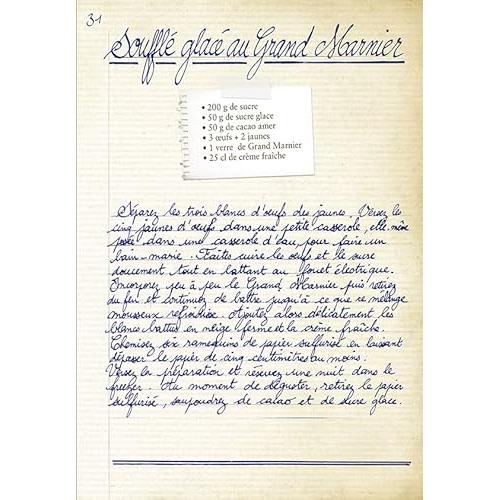 31
Soufflé glacé au Grand Marnier
• 200 g de sucre
• 50 g de sucre glace
• 50 g de cacao amer
• 3 œufs + 2 jaunes
• 1 verre de Grand Marnier
• 25 cl de crème fraîche
Séparez les trois blancs d'œufs des jaunes. Versez les
cinq jaunes d'œufs dans une petite casserole, elle-même
posée dans une casserole d'eau, pour faire un
bain-marie. Faites cuire les œufs et le sucre
doucement tout en battant au fouet électrique.
Incorporez peu à peu le Grand Marnier puis retirez
du feu et continuez de battre jusqu'à ce que ce mélange
mousseux refroidisse. Ajoutez alors délicatement les
blancs battus en neige ferme et la crème fraîche.
Chemisez six ramequins de papier sulfurisé en laissant
dépasser le papier de cinq centimètres au moins.
Versez la préparation et réservez une nuit dans le
freezer. Au moment de déguster, retirez le papier
sulfurisé, saupoudrez de cacao et de sucre glace.